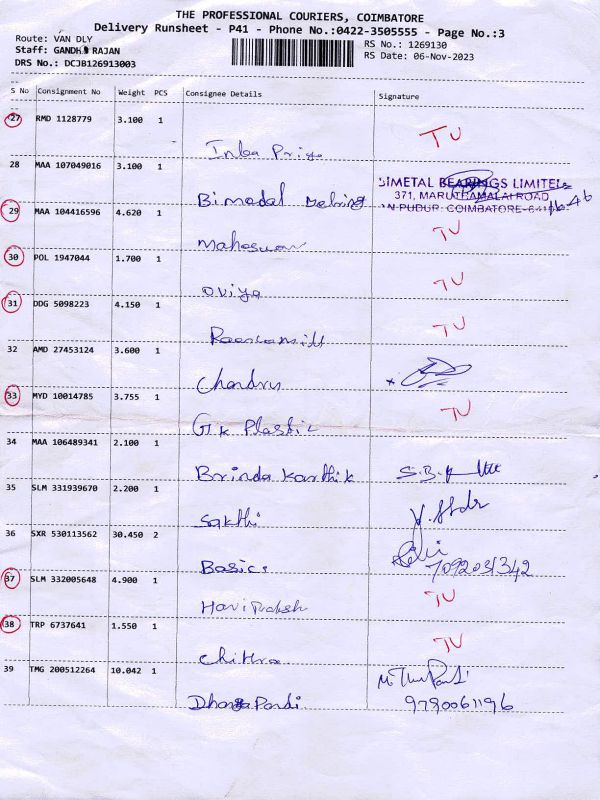 THE PROFESSIONAL COURIERS, COIMBATORE
Delivery Runsheet - P41 - Phone No.:0422-3505555 - Page No.:3
Route: VAN DLY
RS No.: 1269130
Staff: GANDHI RAJAN
RS Date: 06-Nov-2023
DRS No.: DCJB126913003
S No Consignment No Weight PCS Consignee Details Signature
27 RMD 1128779 3.100 1 TU
Inba Priya
28 MAA 107049016 3.100 1
Bimedal BIMETAL BEARINGS LIMITED
371, MARUTHAMALAI ROAD
29 MAA 104416596 4.620 1 PUDUR, COIMBATORE
TU
30 POL 1947044 1.700 1
Oviya TU
31 DDG 5098223 4.150 1 TU
32 AMD 27453124 3.600 1
Chandru
33 MYD 10014785 3.755 1 TU
G.K Plastic
34 MAA 106489341 2.100 1
Brinda Karthik S.B.
35 SLM 331939670 2.200 1
Sakthi
36 SXR 530113562 30.450 2
Basics 7092031342
37 SLM 332005648 4.900 1 TU
Hari Prakash
38 TRP 6737641 1.550 1 TU
Chithra
39 TMG 200512264 10.042 1
9790061196